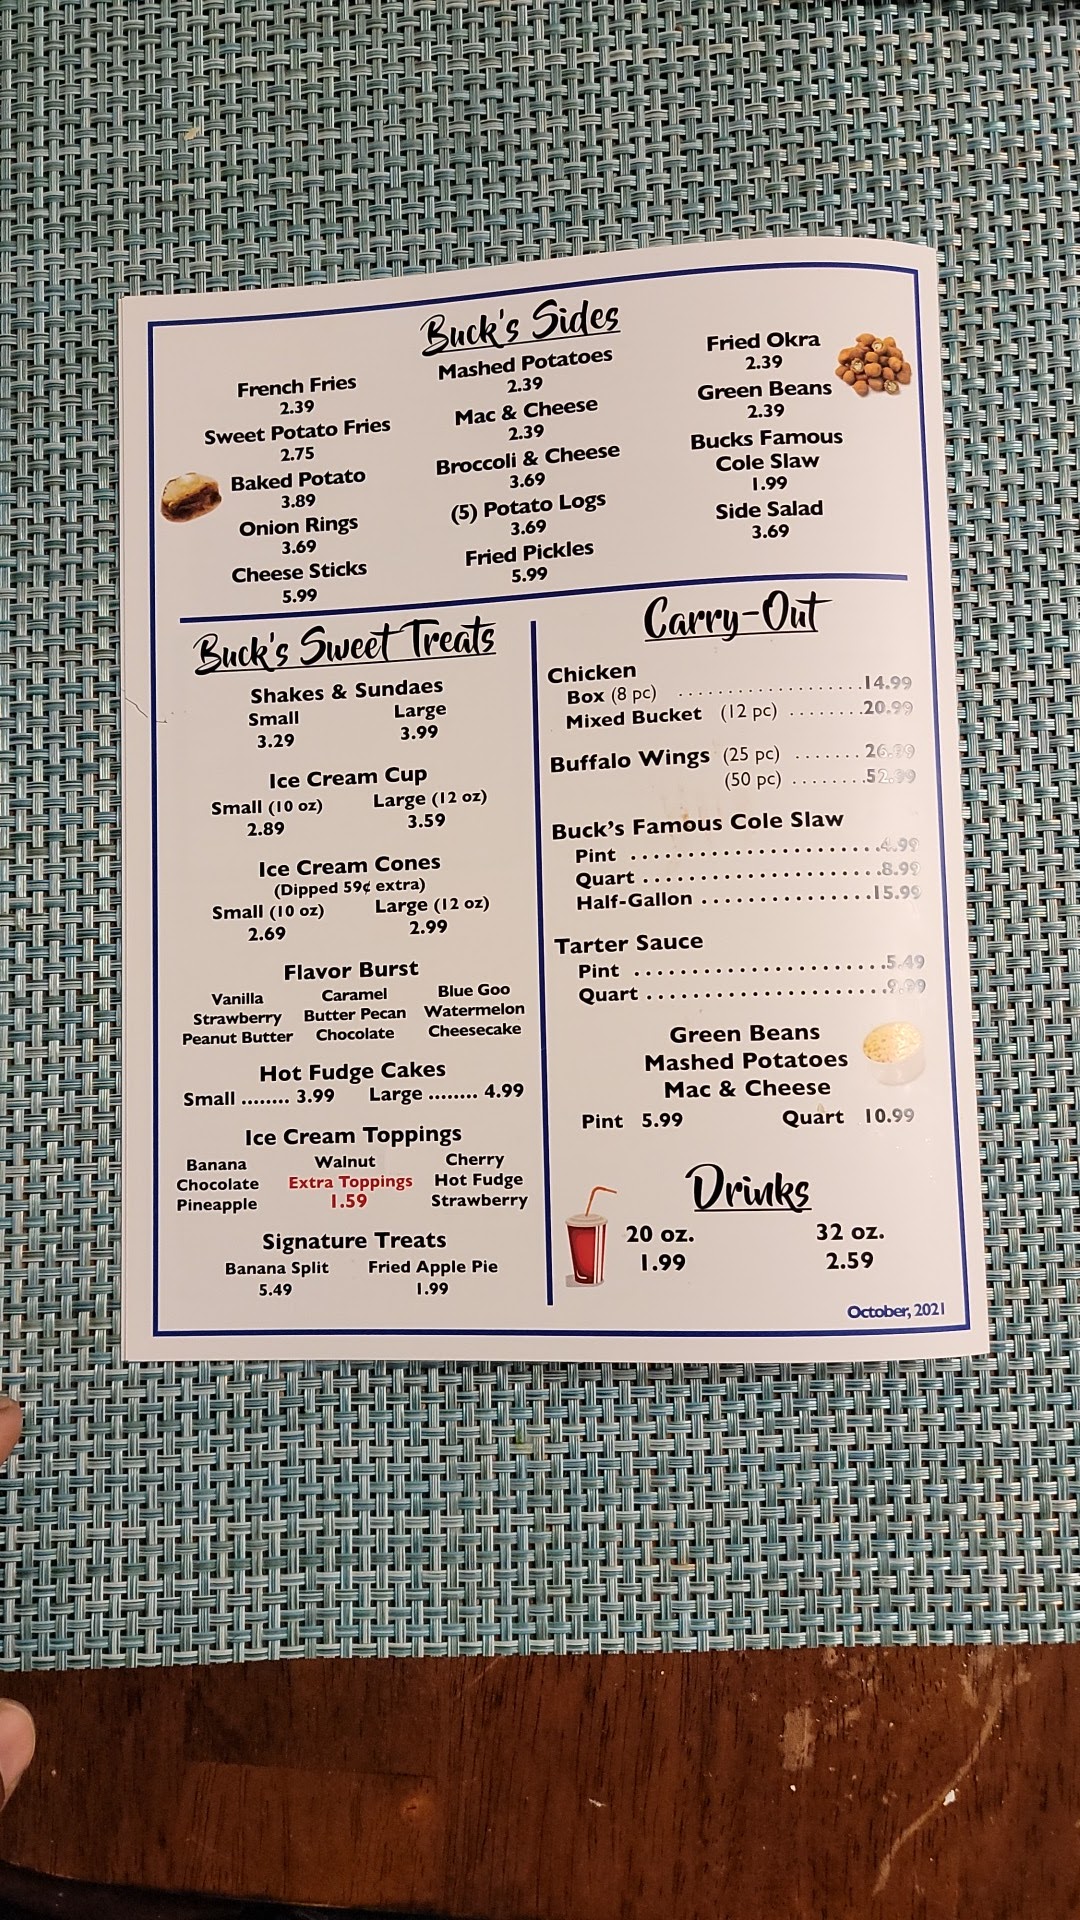 Buck's Sides
French Fries
2.39
Sweet Potato Fries
2.75
Baked Potato
3.89
Onion Rings
3.69
Cheese Sticks
5.99
Mashed Potatoes
2.39
Mac & Cheese
2.39
Broccoli & Cheese
3.69
(5) Potato Logs
3.69
Fried Pickles
5.99
Fried Okra
2.39
Green Beans
2.39
Bucks Famous
Cole Slaw
1.99
Side Salad
3.69
Buck's Sweet Treats
Shakes & Sundaes
Small Large
3.29 3.99
Ice Cream Cup
Small (10 oz) Large (12 oz)
2.89 3.59
Ice Cream Cones
(Dipped 59¢ extra)
Small (10 oz) Large (12 oz)
2.69 2.99
Flavor Burst
Vanilla Caramel Blue Goo
Strawberry Butter Pecan Watermelon
Peanut Butter Chocolate Cheesecake
Hot Fudge Cakes
Small ........ 3.99 Large ........ 4.99
Ice Cream Toppings
Banana Walnut Cherry
Chocolate Extra Toppings Hot Fudge
Pineapple 1.59 Strawberry
Signature Treats
Banana Split Fried Apple Pie
5.49 1.99
Carry-Out
Chicken
Box (8 pc) ...................14.99
Mixed Bucket (12 pc) ........20.99
Buffalo Wings (25 pc) ....... 26.99
(50 pc) ........52.99
Buck's Famous Cole Slaw
Pint ......................4.99
Quart .....................8.99
Half-Gallon ...............15.99
Tarter Sauce
Pint ......................5.49
Quart .....................9.99
Green Beans
Mashed Potatoes
Mac & Cheese
Pint 5.99 Quart 10.99
Drinks
20 oz. 32 oz.
1.99 2.59
October, 2021